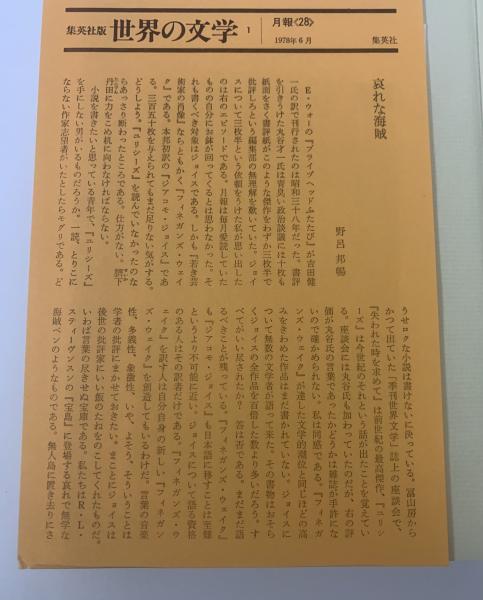 集英社版 世界の文学 1
月報《28》
1978年6月
集英社
哀れな海賊
野呂邦暢
E・ウォーの『ブライヅヘッドふたたび』が吉田健
一氏の訳で刊行されたのは昭和三十八年だった。書評
を引きうけた丸谷才一氏は青臭い政治談議には十枚も
紙面をさく書評紙がこのような傑作をわずか三枚半で
批評しろという編集部の無理解を歎いていた。ジョイ
スについて三枚半という依頼をうけた私が思い出した
のは右のエピソードである。月報は毎月愛読していた
ものの自分にお鉢が回ってくるとは思わなかった。そ
れも書くべき対象はジョイスである。しかも『若き芸
術家の肖像』ならともかく『フィネガンズ・ウェイ
ク』である。本邦初訳の『ジアコモ・ジョイス』であ
る。三百五十枚を与えられてもまだ足りない気がする。
どうしよう。『ユリシーズ』を読んでいなかったのな
らあっさり断わったところである。仕方がない。臍下
丹田に力をこめ机に向わなければならない。
小説を書きたいと思っている青年で、『ユリシーズ』
を手にしない男がいるものだろうか。一読、とりこに
ならない作家志望者がいたとしたらモグリである。ど
うせロクな小説は書けないに決っている。冨山房から
かつて出ていた「季刊世界文学」誌上の座談会で、
『失われた時を求めて』は前世紀の最高傑作、『ユリシ
ーズ』は今世紀のそれという話が出たことを覚えてい
る。座談会には丸谷氏も加わっていたのだが、右の評
価が丸谷氏の言葉であったかどうかは雑誌が手許にな
いので確かめられない。私は同感である。『フィネガ
ンズ・ウェイク』が達した文学的潮位と同じほどの高
みをきわめた作品はまだ書かれていない。ジョイスに
ついて無数の文学者が語って来た。その書物はおそら
くジョイスの全作品を百倍した数より多いだろう。す
べてがいい尽されたか? 答は否である。まだまだ語
るべきことが残っている。『フィネガンズ・ウェイク』
も『ジアコモ・ジョイス』も日本語に移すことは至難
というより不可能に近い。ジョイスについて語る資格
のある人はその訳者だけである。『フィネガンズ・ウ
ェイク』を訳す人は自分自身の新しい『フィネガン
ズ・ウェイク』を創造してもいるわけだ。言葉の音楽
性、多義性、象徴性、いや、よそう。そういうことは
学者の批評にまかせておきたい。まことにジョイスは
後世の批評家にいい飯のたねをのこしてくれたものだ。
いわば言葉の尽きせぬ宝庫である。私たちはR・L・
スティーヴンスンの『宝島』に登場する哀れで無学な
海賊ベンのようなものである。無人島に置き去りにさ